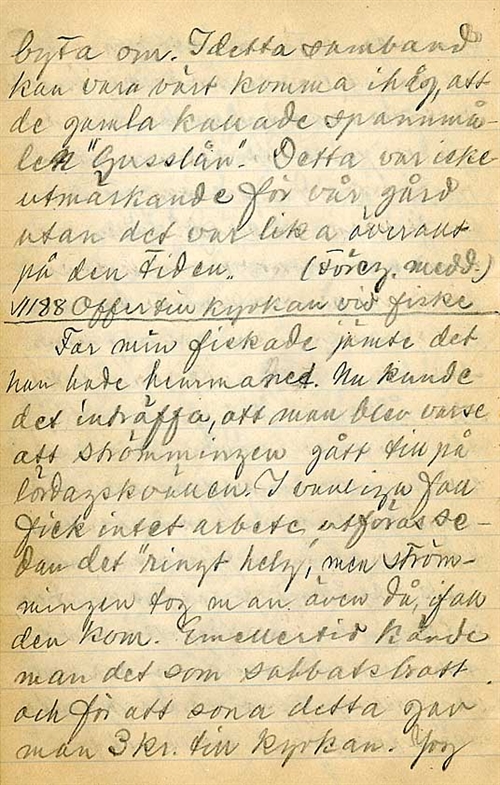 byta om. I detta samband
kan vara värt komma ihåg, att
de gamla kallade spannmå-
len "Gusslån". Detta var icke
utmärkande för vår gård
utan det var lika överallt
på den tiden. (Föreg. medd.)
VII 88 Offer till kyrkan vid fiske
Far min fiskade jämte det
han hade hemmanet. Nu kunde
det inträffa, att man blev varse
att strömmingen gått till på
lördagskvällen. I vanliga fall
fick intet arbete utföras se-
dan det "ringt helg", men ström-
mingen tog man även då, ifall
den kom. Emellertid kände
man det som sabbatsbrott
och för att sona detta gav
man 3 kr. till kyrkan. Jag